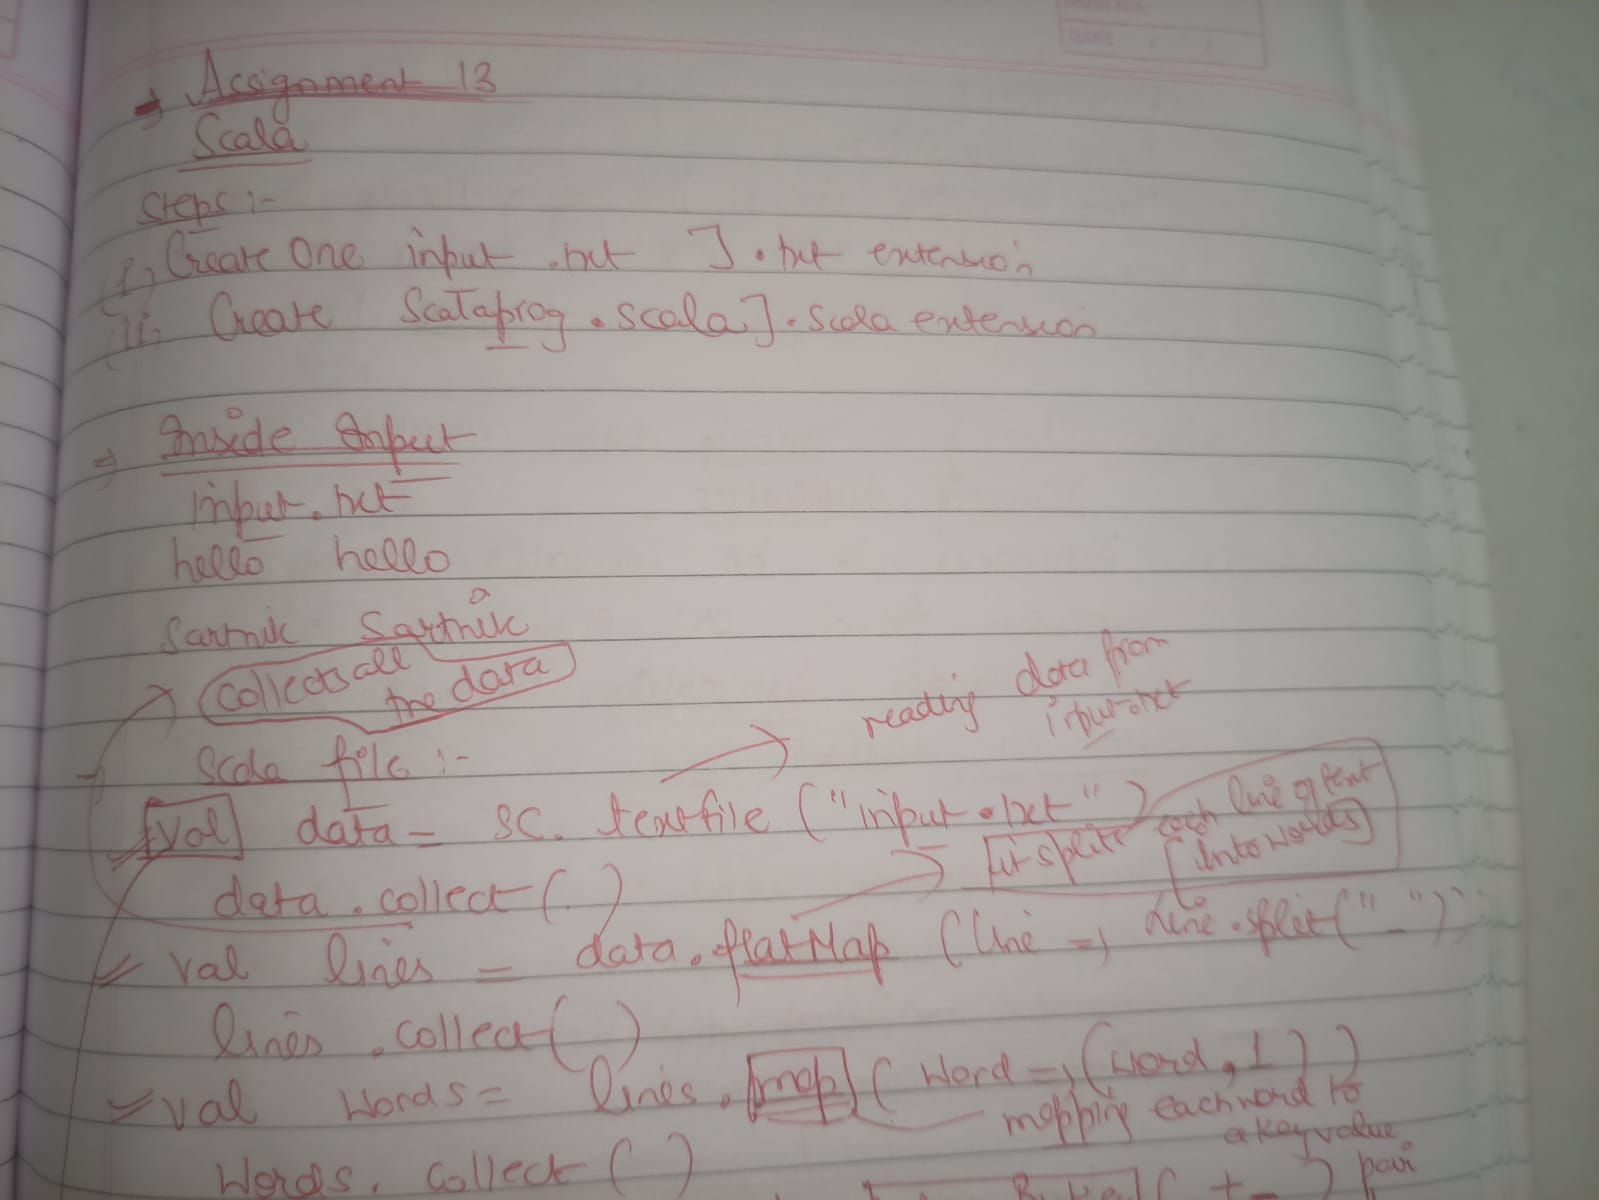 DATE
→ Assignment 13
Scala
Steps :-
(i) Create One input .txt ] .txt extension
(ii) Create Scalaprog . scala ] . scala extension
⇒ Inside Input
input . txt
hello hello
Sarthik Sarthik
Collects all
the data
reading data from
input.txt
→ Scala file :-
val data = sc. textfile ("input . txt")
it splits each line of text
into words
data . collect ( )
val lines = data . flatMap (line => line . split (" "))
lines . collect ( )
val words = lines . map ( word => (word, 1 ) )
mapping each word to
a key value
pair
words . collect ( )